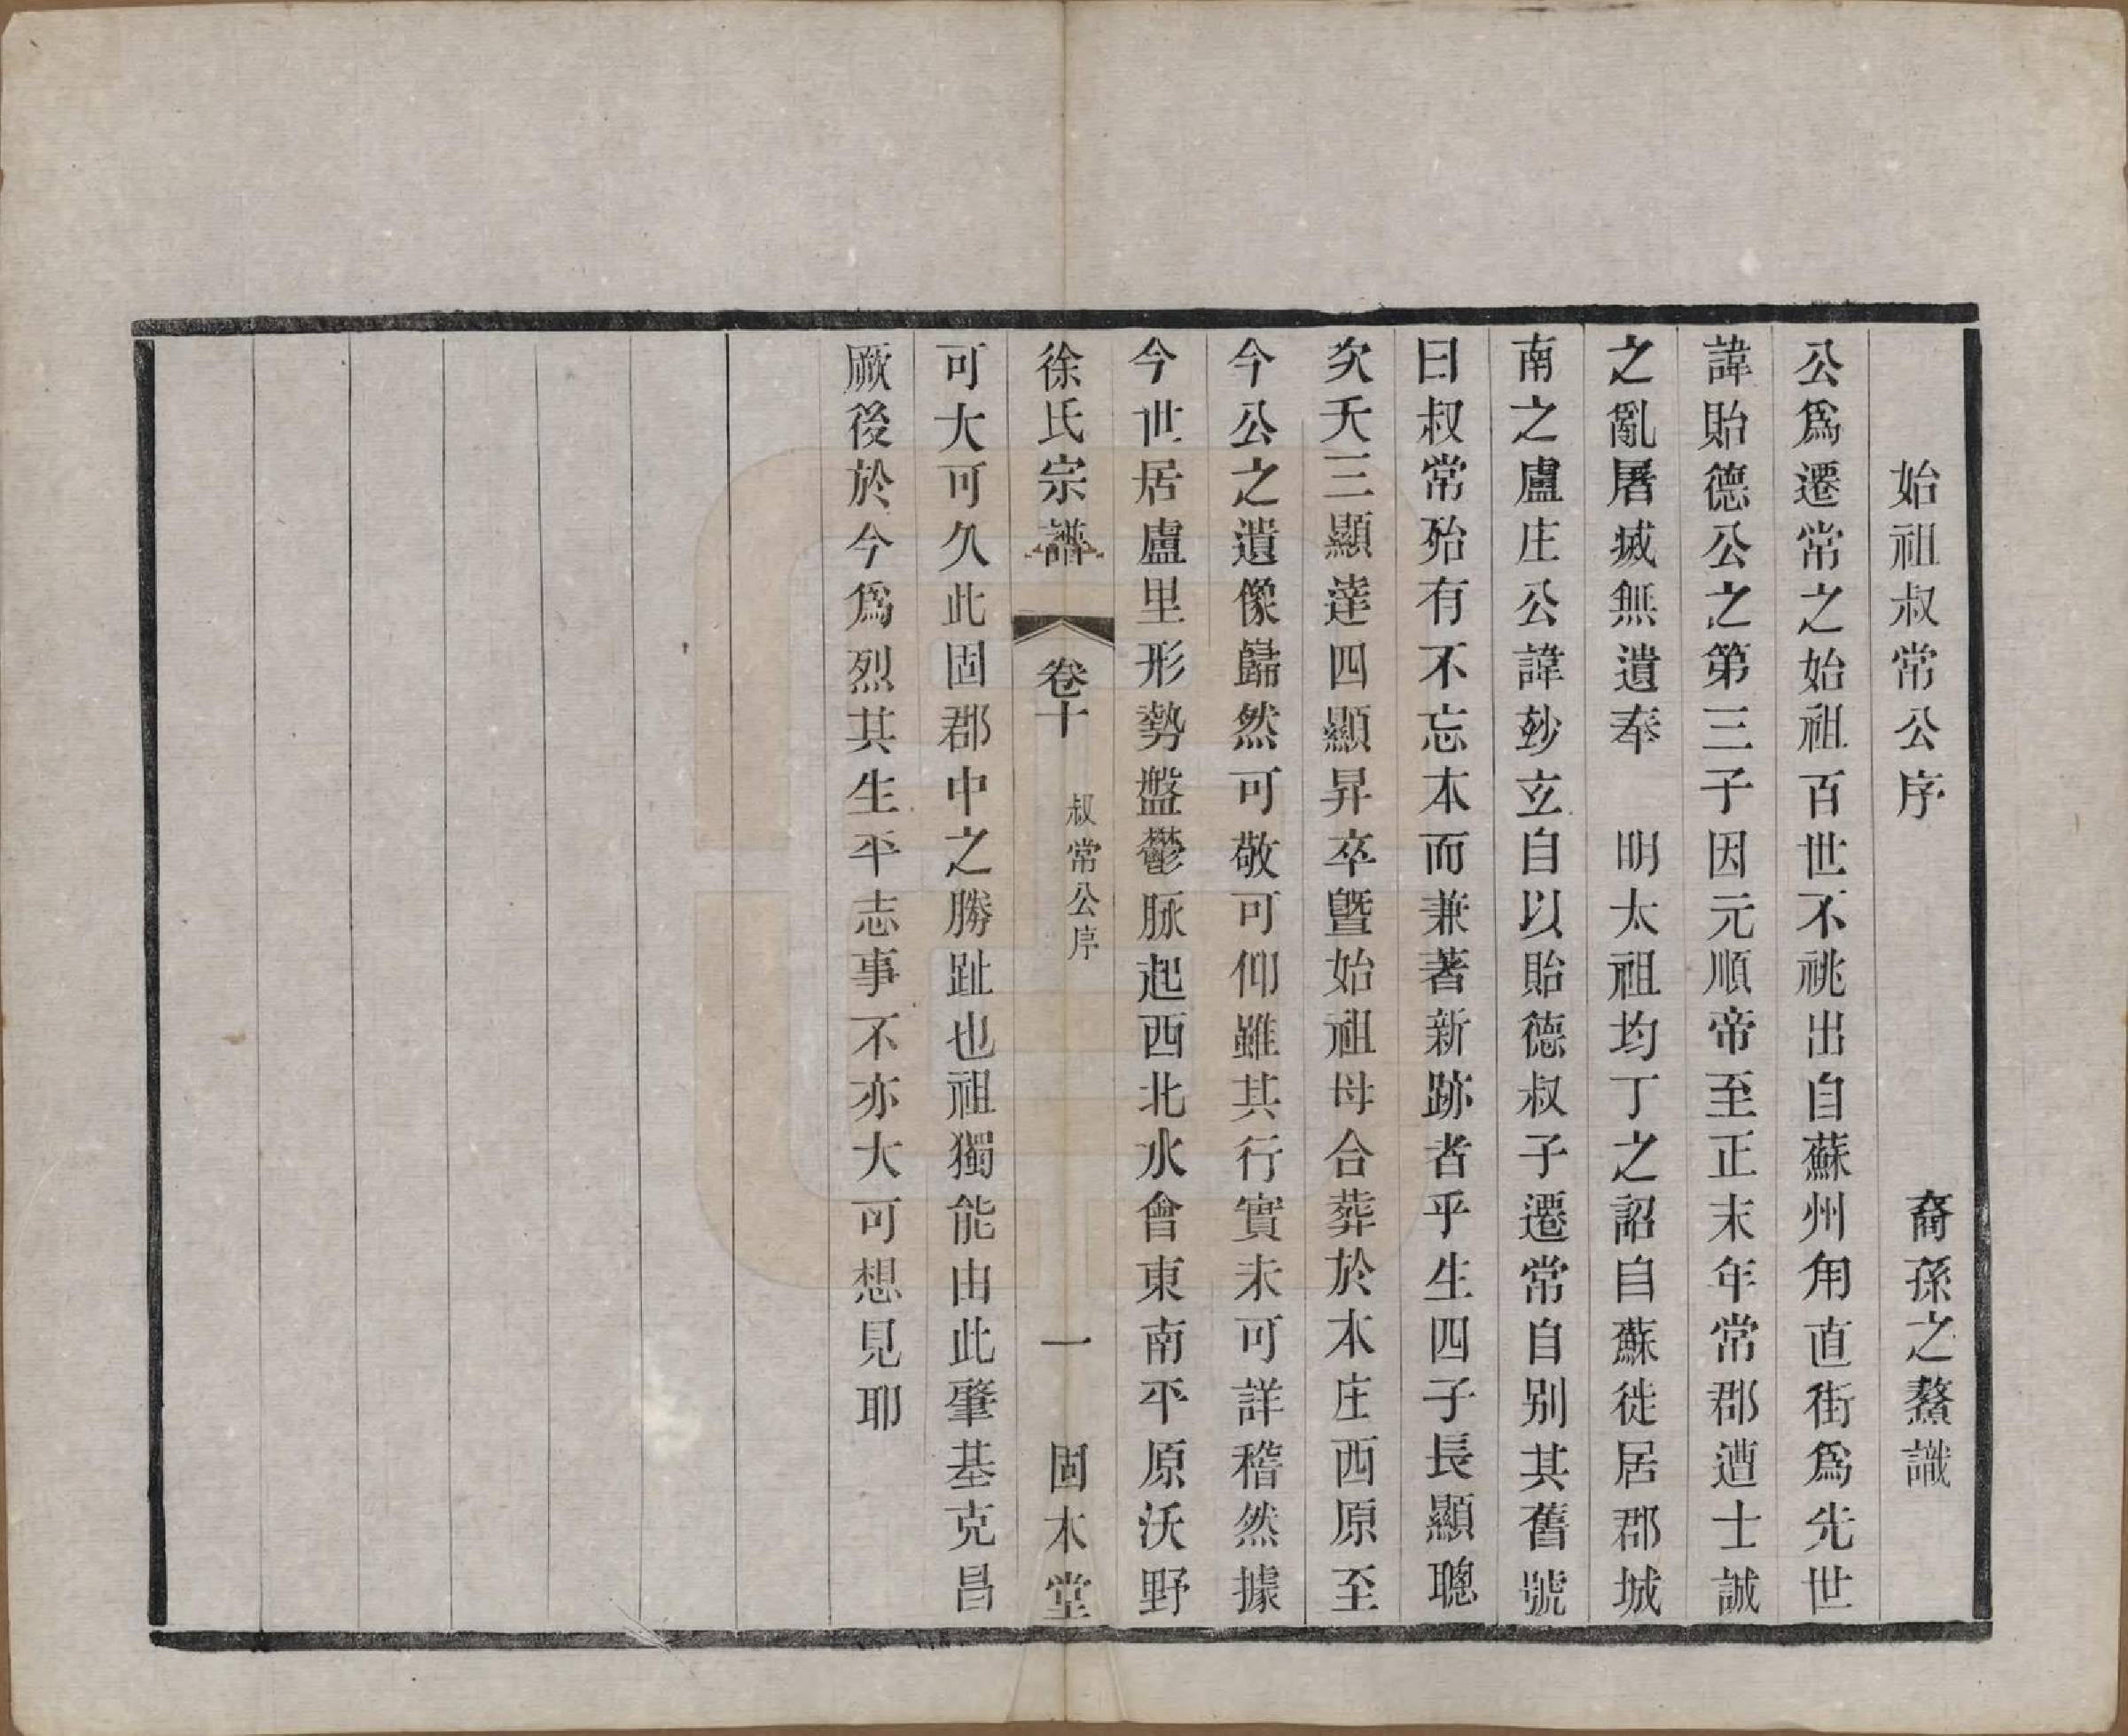 始祖叔常公序　裔孫之鰲識
公爲遷常之始祖百世不祧出自蘇州甪直街爲先世
諱貽德公之第三子因元順帝至正末年常郡遭士誠
之亂屠滅無遺奉　明太祖均丁之詔自蘇徙居郡城
南之盧庄公諱玅玄自以貽德叔子遷常自别其舊號
曰叔常殆有不忘本而兼著新跡者乎生四子長顯聰
次夭三顯達四顯昇卒曁始祖母合葬於本庄西原至
今公之遺像巋然可敬可仰雖其行實未可詳稽然據
今世居盧里形勢盤鬱脉起西北水會東南平原沃野
徐氏宗譜　卷十　叔常公序　一　固本堂
可大可久此固郡中之勝趾也祖獨能由此肇基克昌
厥後於今爲烈其生平志事不亦大可想見耶